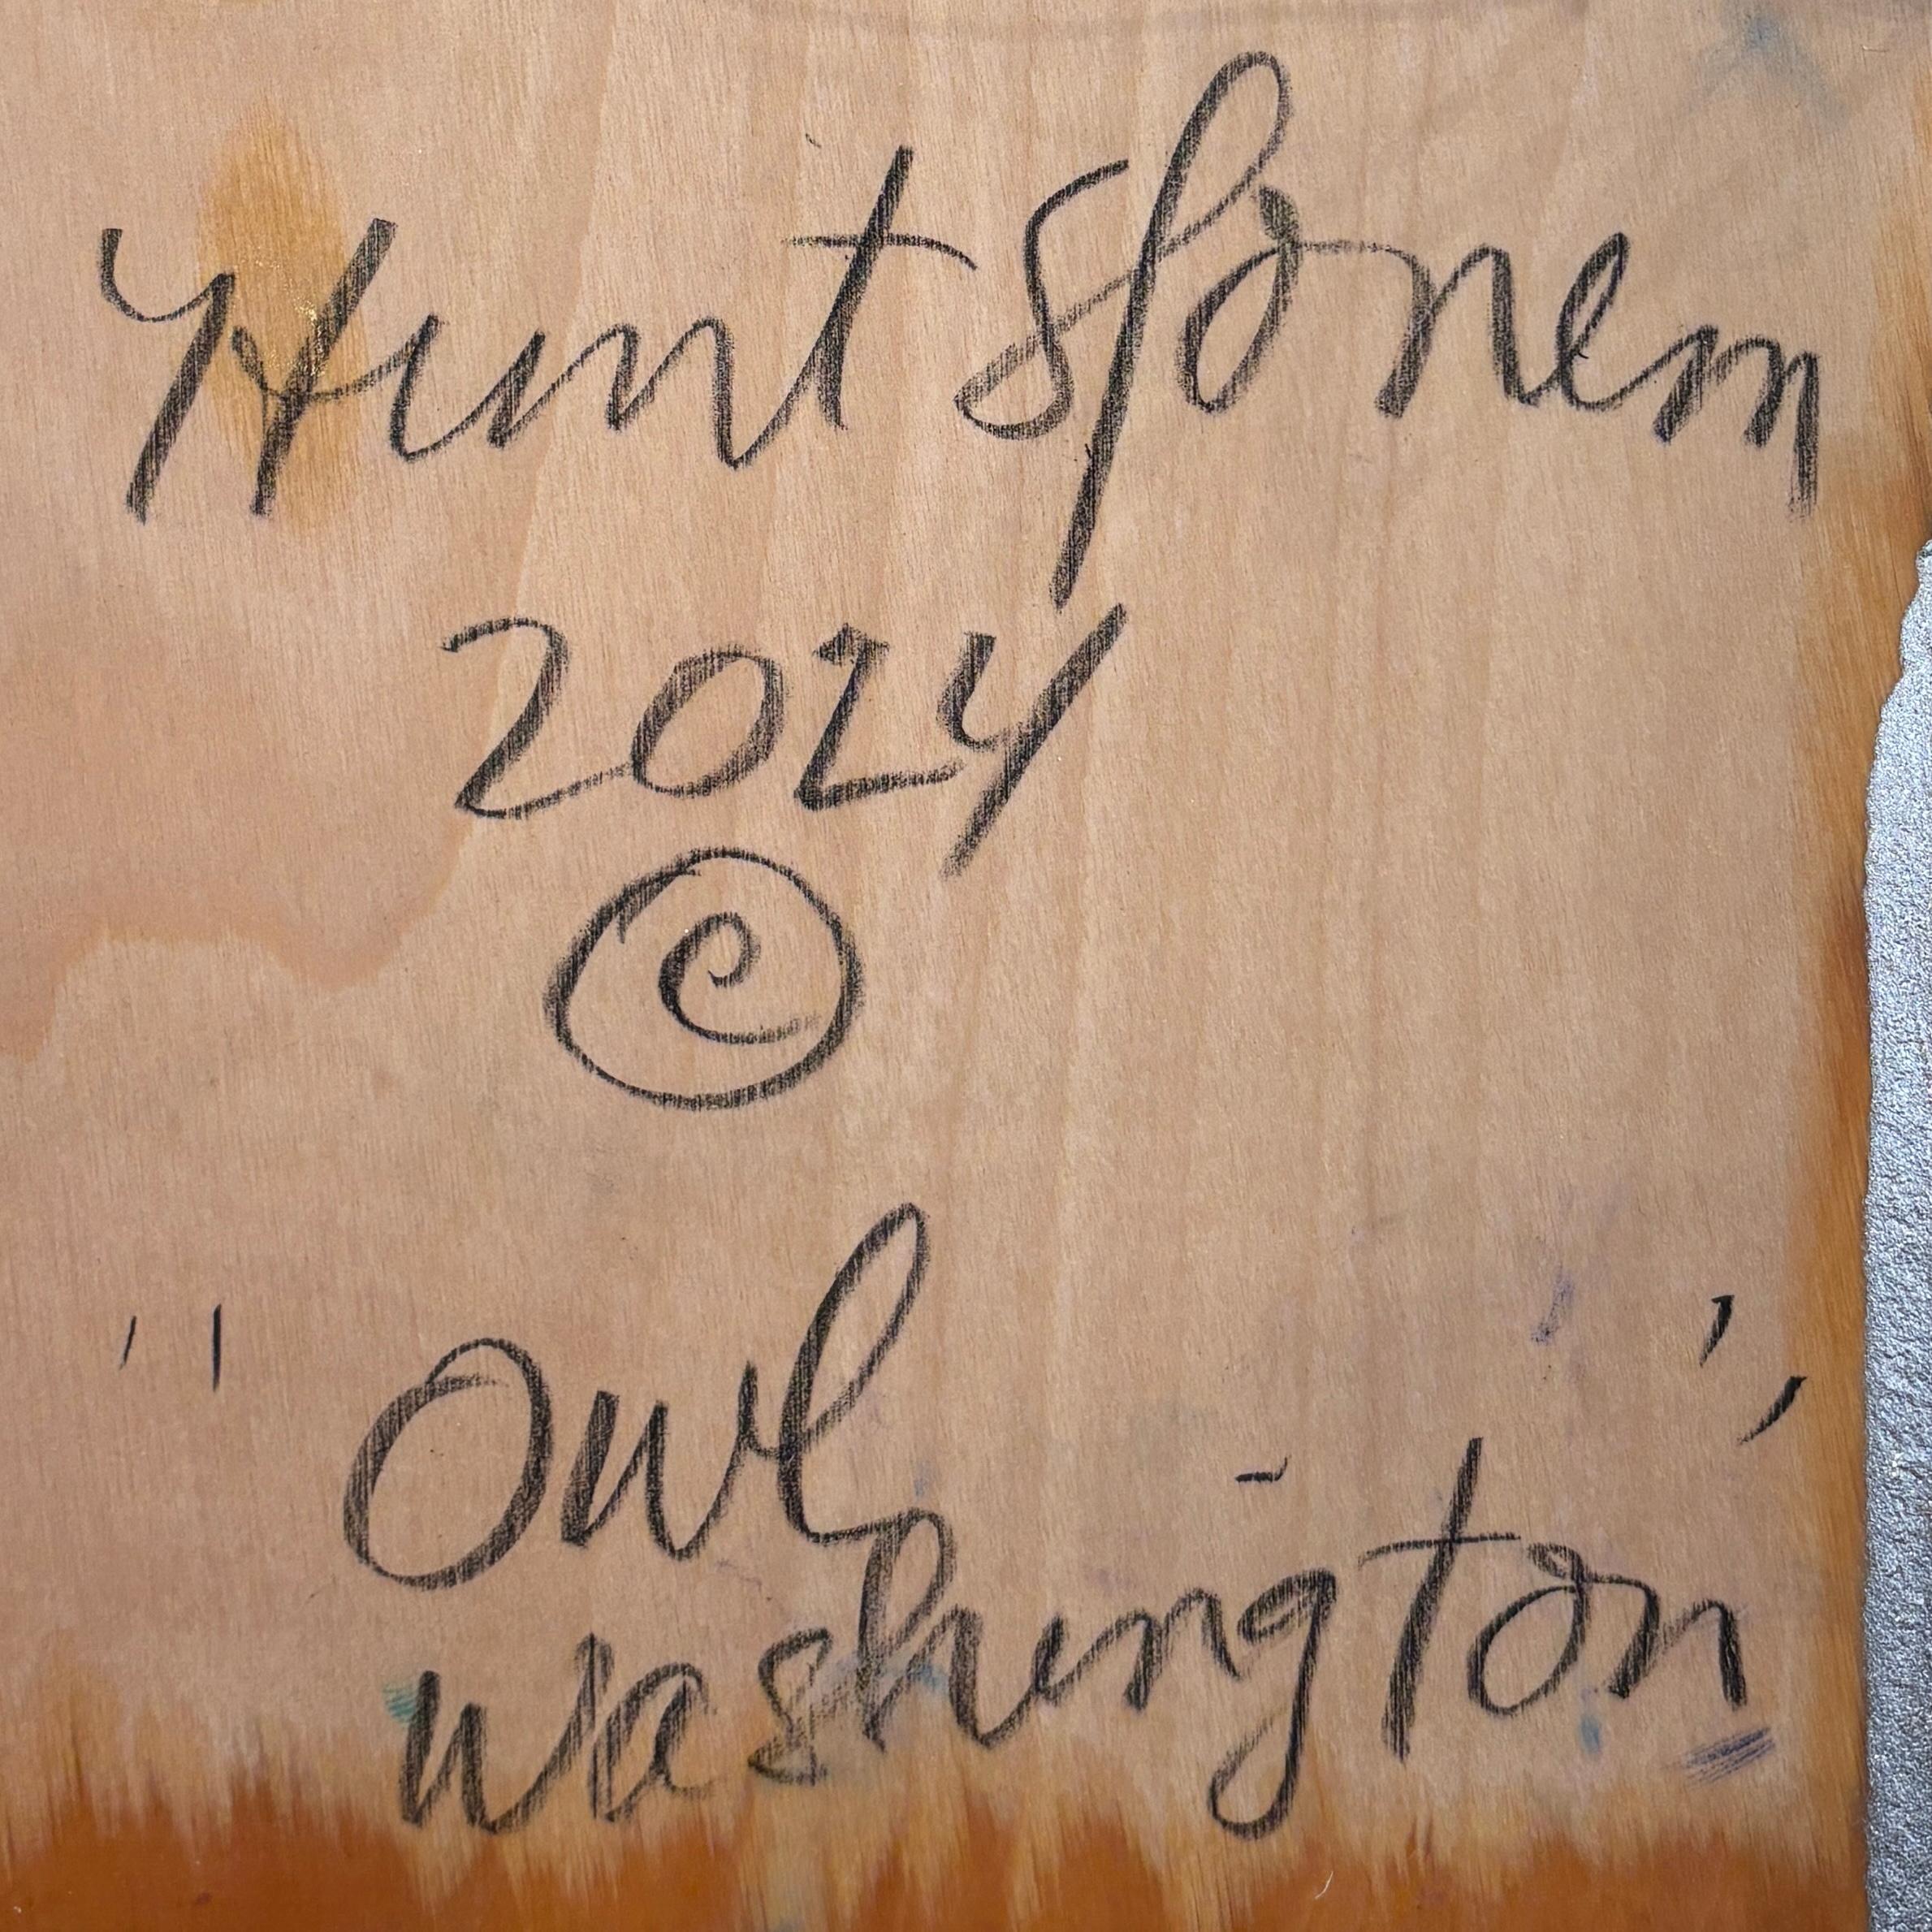 Hunt Slonem
2024
©
"Owl
Washington"